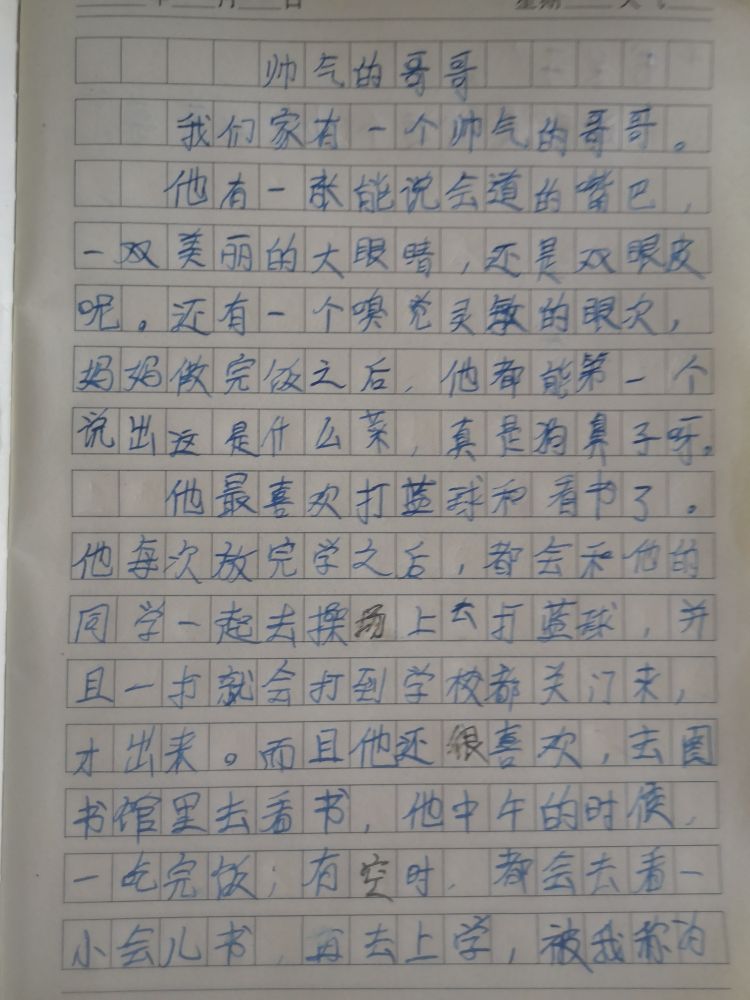 年 月 日 星期 天气
帅气的哥哥
我们家有一个帅气的哥哥。
他有一张能说会道的嘴巴，
一双美丽的大眼睛，还是双眼皮
呢。还有一个嗅觉灵敏的眼次，
妈妈做完饭之后，他都能第一个
说出这是什么菜，真是狗鼻子呀。
他最喜欢打蓝球和看书了。
他每次放完学之后，都会和他的
同学一起去操场上去打蓝球，并
且一打就会打到学校都关门来，
才出来。而且他还很喜欢，去图
书馆里去看书，他中午的时候，
一吃完饭；有空时，都会去看一
小会儿书，再去上学，被我称为